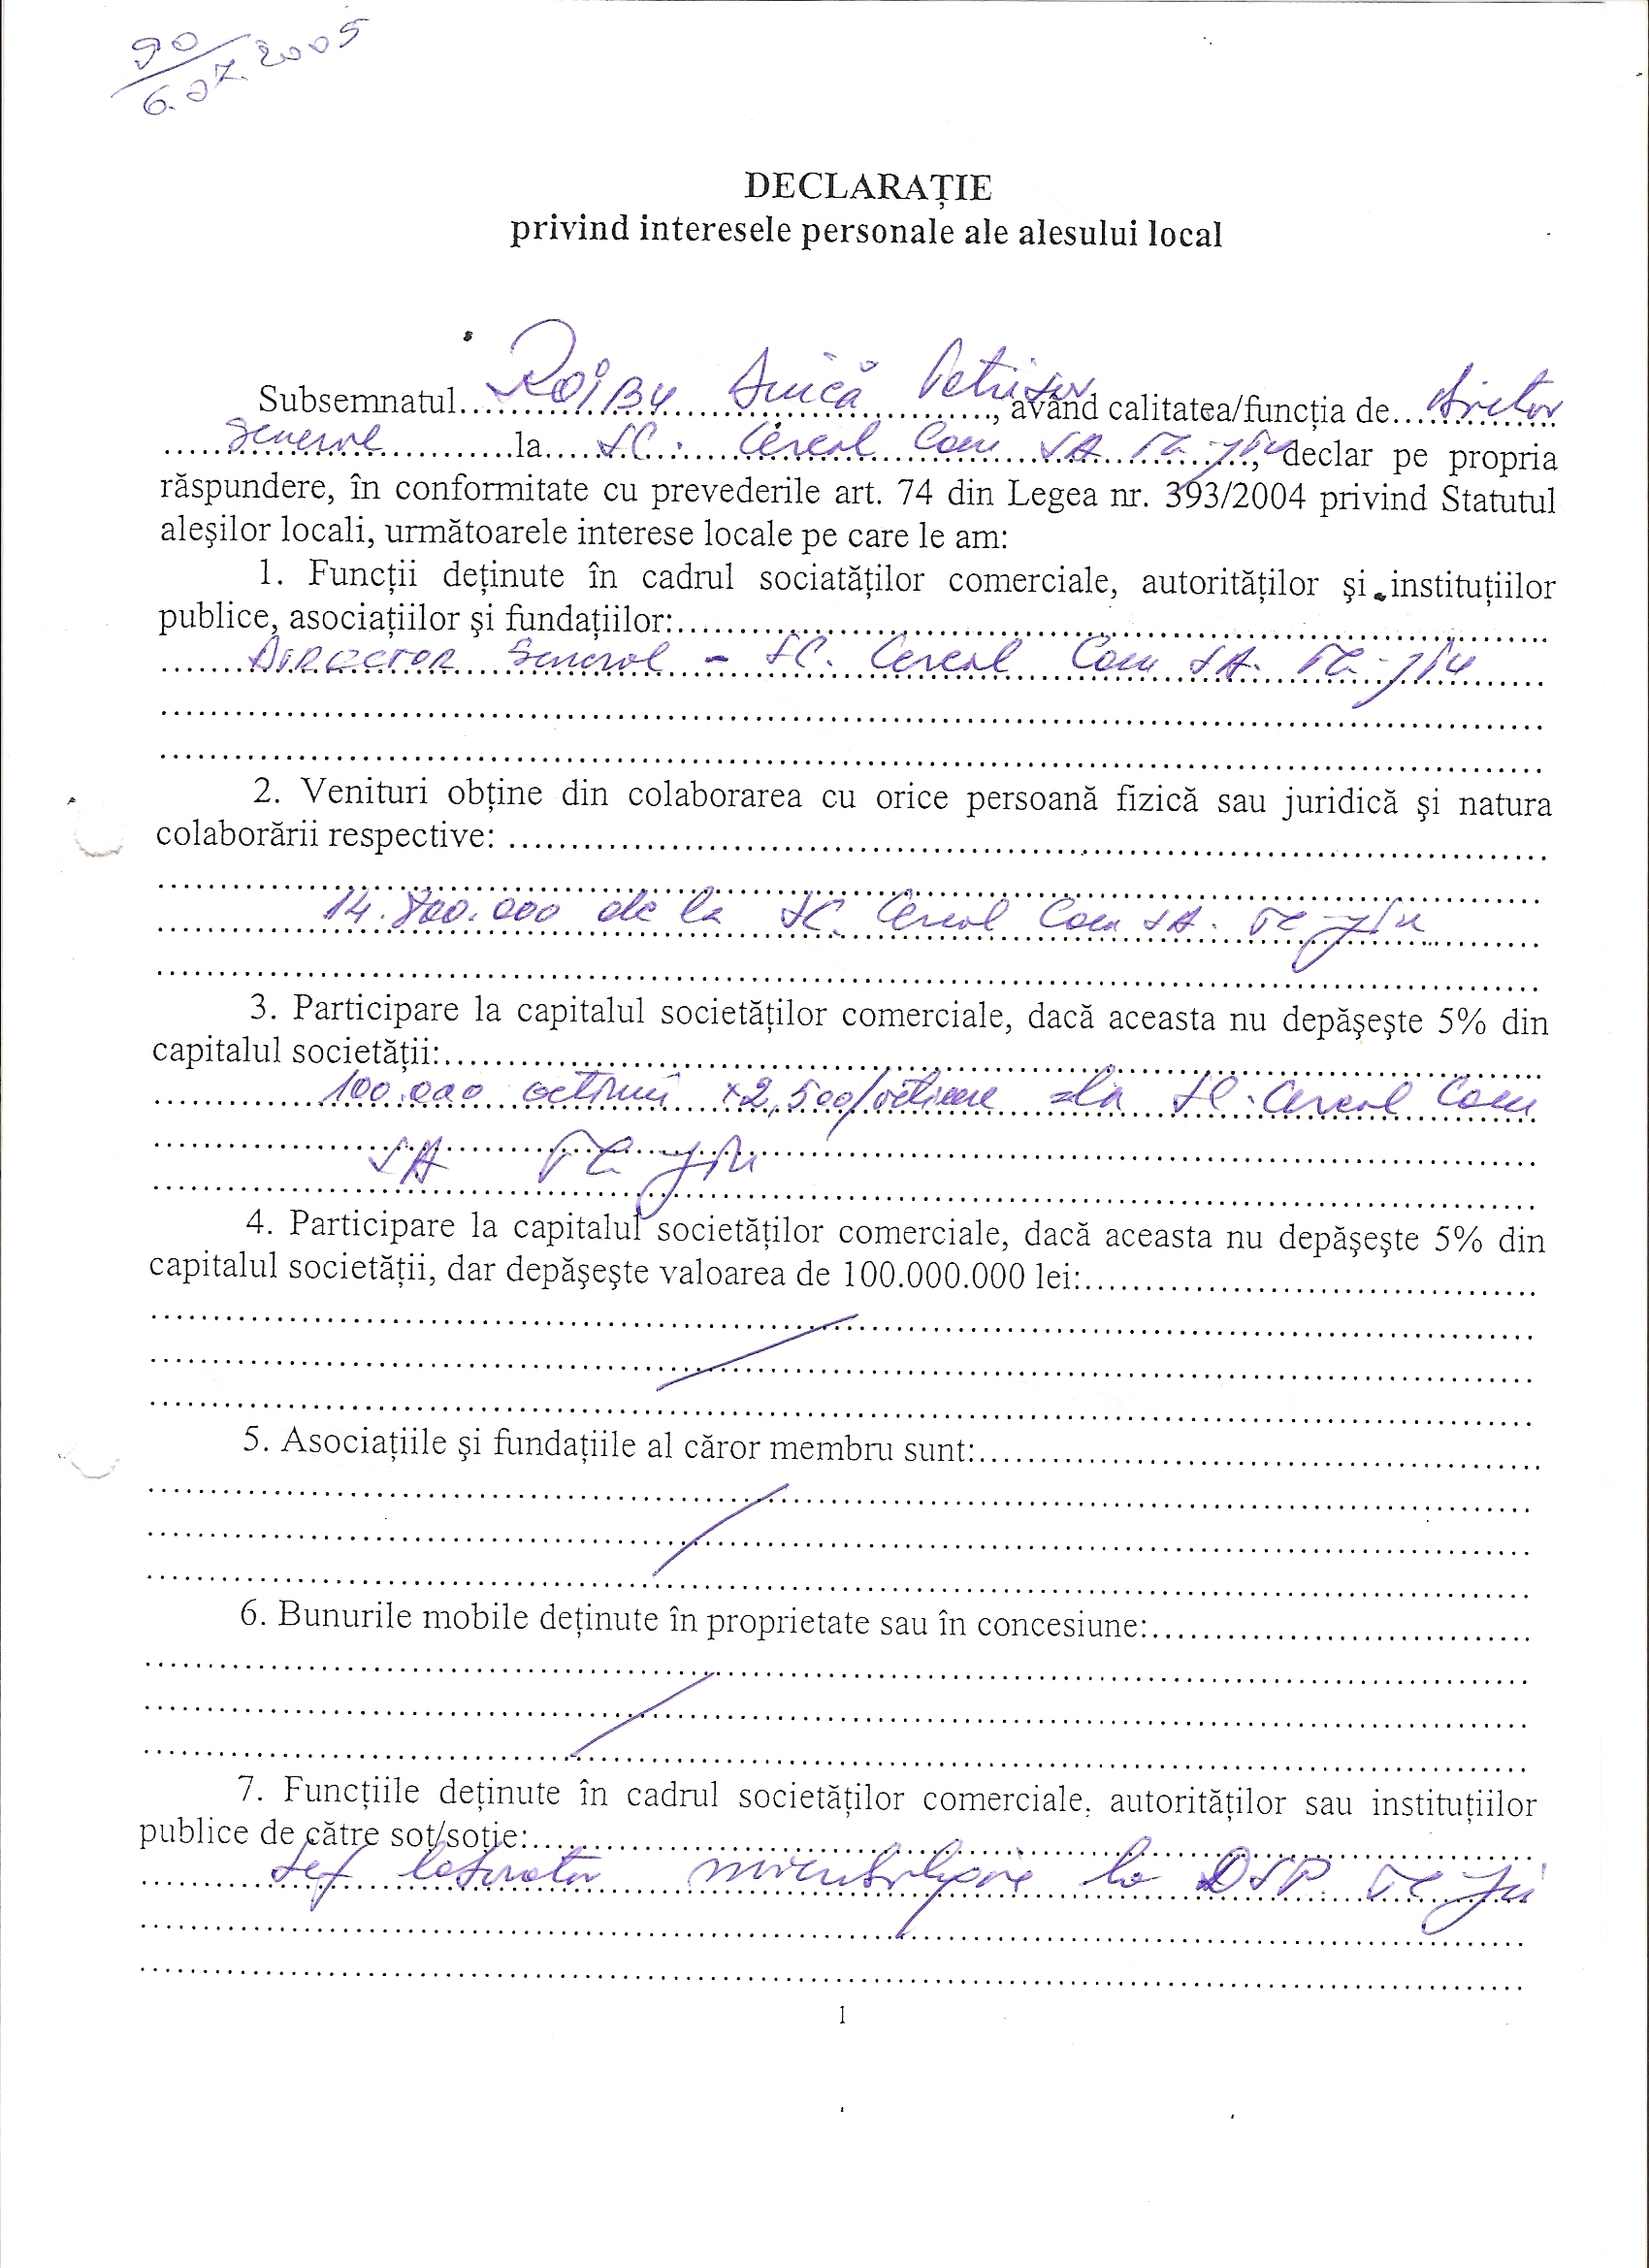 90
6.07.2005
DECLARAŢIE
privind interesele personale ale alesului local
Subsemnatul ROIBU Petrişor, având calitatea/funcţia de director
general la SC. Cereal Com SA TG-JIU, declar pe propria
răspundere, în conformitate cu prevederile art. 74 din Legea nr. 393/2004 privind Statutul
aleşilor locali, următoarele interese locale pe care le am:
1. Funcţii deţinute în cadrul sociatăţilor comerciale, autorităţilor şi instituţiilor
publice, asociaţiilor şi fundaţiilor:
DIRECTOR General - SC. Cereal Com SA. TG-JIU
2. Venituri obţine din colaborarea cu orice persoană fizică sau juridică şi natura
colaborării respective:
14.800.000 de la SC. Cereal Com SA. TG-JIU
3. Participare la capitalul societăţilor comerciale, dacă aceasta nu depăşeşte 5% din
capitalul societăţii:
100.000 actiuni x2,500/actiune la SC. Cereal Com
SA TG JIU
4. Participare la capitalul societăţilor comerciale, dacă aceasta nu depăşeşte 5% din
capitalul societăţii, dar depăşeşte valoarea de 100.000.000 lei:
5. Asociaţiile şi fundaţiile al căror membru sunt:
6. Bunurile mobile deţinute în proprietate sau în concesiune:
7. Funcţiile deţinute în cadrul societăţilor comerciale, autorităţilor sau instituţiilor
publice de către soţ/soţie:
Sef laborator la DSP TG JIU
1